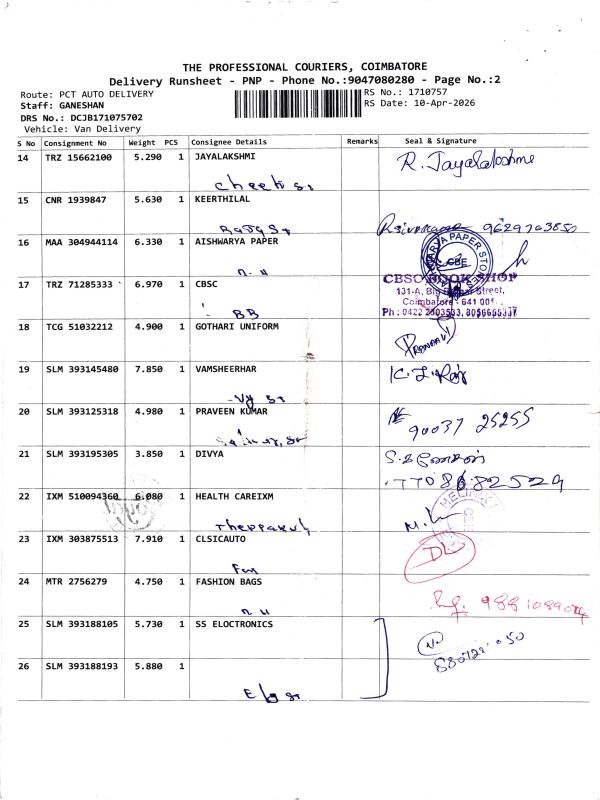 THE PROFESSIONAL COURIERS, COIMBATORE
Delivery Runsheet - PNP - Phone No.:9047080280 - Page No.:2
Route: PCT AUTO DELIVERY
RS No.: 1710757
Staff: GANESHAN
RS Date: 10-Apr-2026
DRS No.: DCJB171075702
Vehicle: Van Delivery
S No Consignment No Weight PCS Consignee Details Remarks Seal & Signature
14 TRZ 15662100 5.290 1 JAYALAKSHMI R. Jayalakshme
15 CNR 1939847 5.630 1 KEERTHILAL
9629703850
16 MAA 304944114 6.330 1 AISHWARYA PAPER
n. H
17 TRZ 71285333 6.970 1 CBSC CBSC BOOK SHOP
131-A, Big Street,
Coimbatore - 641 001
BB Ph : 0422
18 TCG 51032212 4.900 1 GOTHARI UNIFORM
19 SLM 393145480 7.850 1 VAMSHEERHAR
20 SLM 393125318 4.980 1 PRAVEEN KUMAR
90037 25255
21 SLM 393195305 3.850 1 DIVYA
22 IXM 510094360 6.080 1 HEALTH CAREIXM
23 IXM 303875513 7.910 1 CLSICAUTO DL
24 MTR 2756279 4.750 1 FASHION BAGS
n. H
25 SLM 393188105 5.730 1 SS ELOCTRONICS
26 SLM 393188193 5.880 1